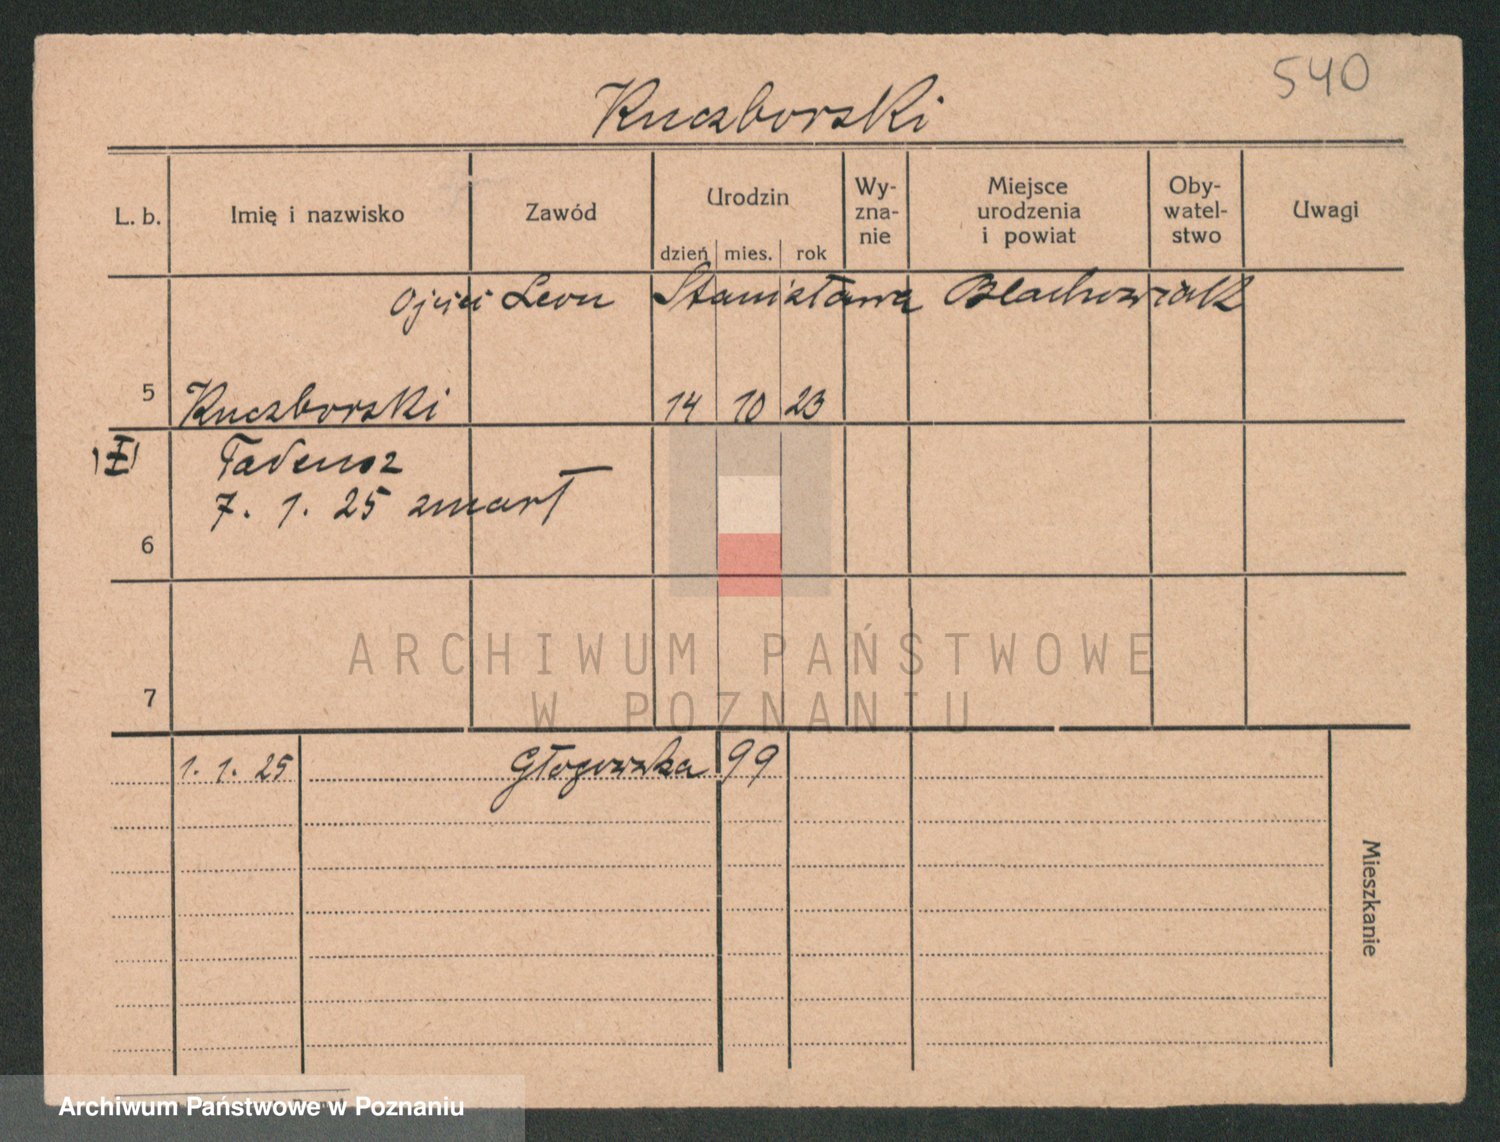 540
Kuczborski
L. b. Imię i nazwisko Zawód Urodzin dzień mies. rok Wy-zna-nie Miejsce urodzenia i powiat Oby-watel-stwo Uwagi
Leon Stanisława Blachowiak
5 Kuczborski 14 10 23
Tadeusz
7. 1. 25 zmarł
6
ARCHIWUM PAŃSTWOWE
W POZNANIU
7
1. 1. 25 Głogowska 99
Mieszkanie
Archiwum Państwowe w Poznaniu